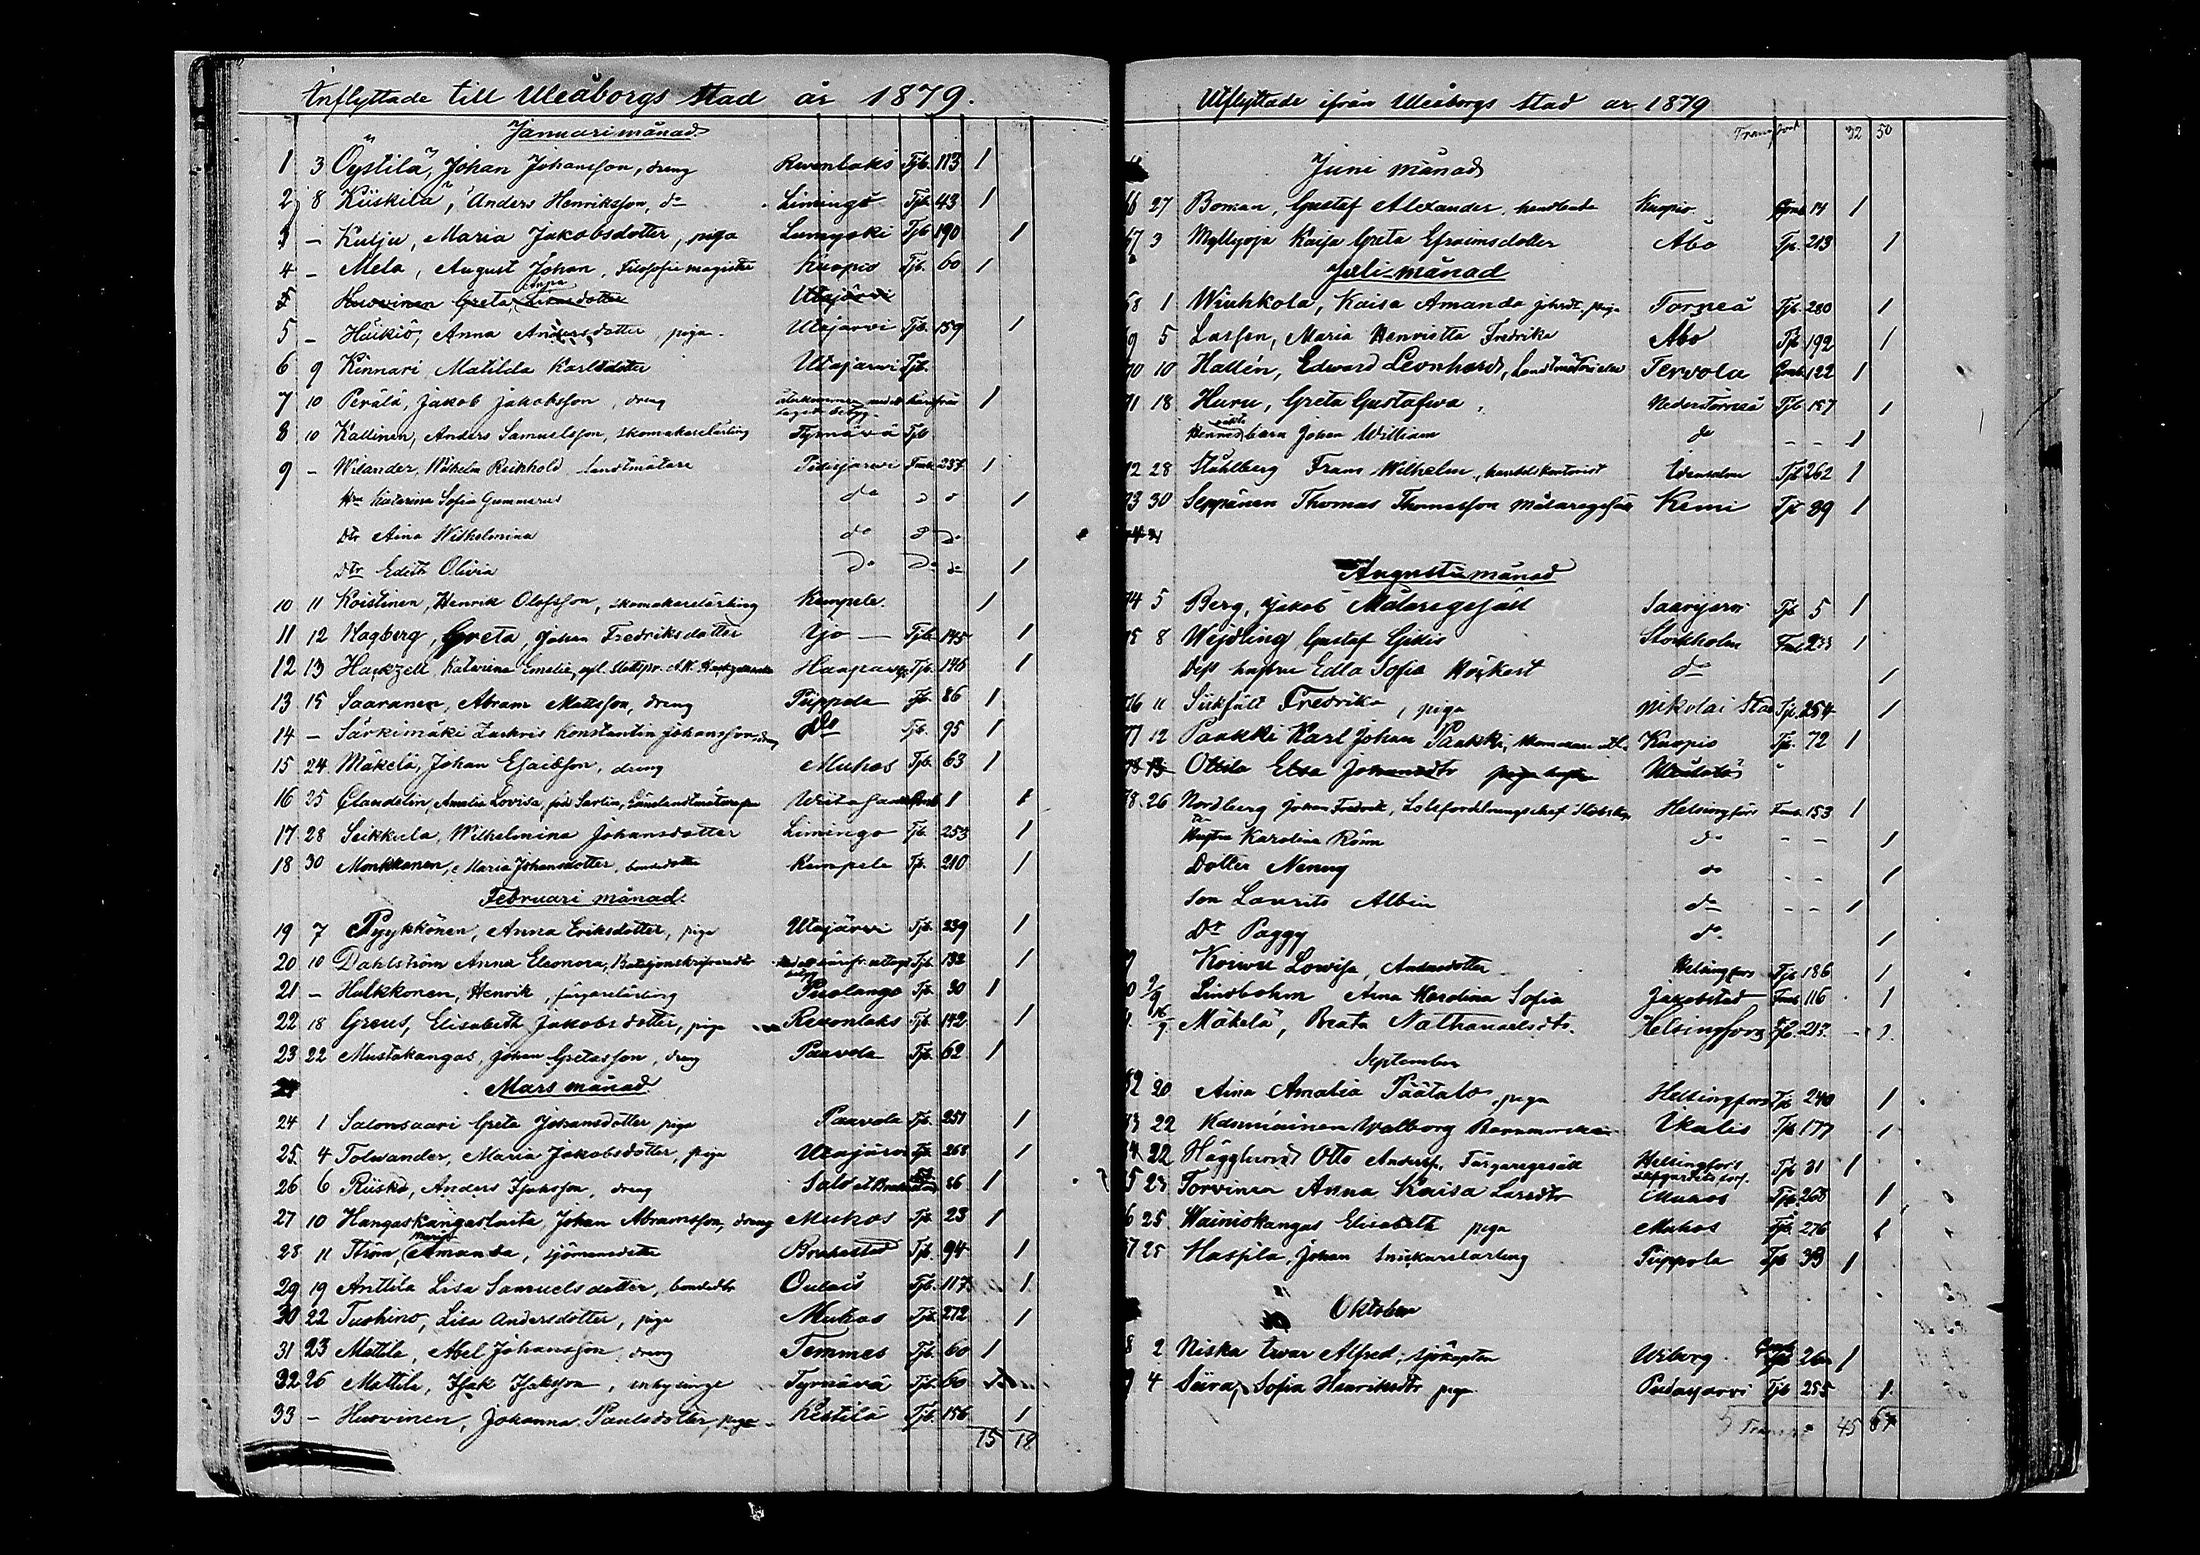 Inflyttade till Uleåborgs stad år 1879.
Januari månad
1 3 Öystilä, Johan Johansson, dreng Revonlaks Tjb. 113 1
2 8 Kiiskilä, Anders Henriksson, do Limingo Tjb. 43 1
3 – Kulju, Maria Jakobsdotter, piga Lumijoki Tjb 190 1
4 – Mela, August Johan, Filosofie magister Kuopio Tjb. 60 1
5 Huovinen Greta Utajärvi
5 – Häikiö, Anna Andersdotter, piga Utajärvi Tjb. 159 1
6 9 Kinnari Matilda Karlsdotter Utajärvi Tjb.
7 10 Perälä, Jakob Jakobsson, dreng 1
8 10 Kallinen, Anders Samuelsson, skomakarelärling Tyrnävä Tjb
9 – Wilander, Wilhelm Reinhold landtmätare Pidisjärvi Fmb. 237 1
Hru Katarina Sofia Gummerus do 1
dtr Aina Wilhelmina do
dtr Edith Olivia do 1
10 11 Koistinen, Henrik Olofsson, skomakarelärling Kempele 1
11 12 Hagberg, Greta, Johan Fredriksdotter Ijo Tjb 145 1
12 13 Katarina Emelia, Haapavesi Tjb. 146 1
13 15 Saaranen, Abram Mattsson, dreng Piippola Tjb. 86 1
14 – Särkimäki Konstantin Johansson, dreng Do Tjb. 95 1
15 24 Mäkelä, Johan Esaiasson, dreng Muhos Tjb. 63 1
16 25 Clandelin, Amalia Lovisa, född 1 1
17 28 Seikkula, Wilhelmina Johansdotter Limingo Tjb 253 1
18 30 Monkkonen, Maria Johansdotter, bondedotter Kempele Tjb. 210 1
Februari månad.
19 7 Pyykkönen, Anna Eriksdotter, piga Utajärvi Tjb. 239 1
20 10 Dahlström Anna Eleonora, Tjb 132 1
21 – Hulkkonen, Henrik, färgarelärling Puolango Tjb. 30 1
22 18 Greus, Elisabeth Jakobsdotter, piga Revonlaks Tjb. 142 1
23 22 Mustakangas, Johan Gretasson, dreng Paavola Tjb. 62 1
24 Mars månad
24 1 Salonsaari Greta Johansdotter piga Paavola Tjb. 251 1
25 4 Tolvander, Maria Jakobsdotter, piga Utajärvi Tjb 268 1
26 6 Riisko, Anders Isaksson, dreng Salo 86 1
27 10 Hangaskangaslaita, Johan Abramsson, dreng Muhos Tjb. 23 1
28 11 Ström, Amanda, sjömansdotter Brahestad Tjb. 94 1
29 19 Anttila Lisa Samuelsdotter, bondedtr Oulais Tjb. 117 1
30 22 Tuohino, Lisa Andersdotter, piga Muhos Tjb. 272 1
31 23 Mattila, Abel Johansson dreng Temmes Tjb. 60 1
32 26 Mattila, Isak Isaksson, inhysinge Tyrnävä Tjb. 60
33 – Huovinen, Johanna Paulsdotter, piga Kestilä Tjb. 156 1
15 18
Utflyttade ifrån Uleåborgs stad år 1879
Transport 32 50
Juni månad
66 27 Boman, Gustaf Alexander, handlande Kuopio 14 1
67 3 Myllyoja Kaisa Greta Efraimsdotter Åbo Tjb 213 1
Juli månad
68 1 Wiuhkola, Kaisa Amanda Johsdtr, piga Torneå Tjb. 280 1
69 5 Larsen, Maria Henrietta Fredrika Åbo Tjb 192 1
70 10 Hallén, Edward Leonhard, Tervola 122 1
71 18 Huru, Greta Gustafva, Neder Torneå Tjb 157 1
Hennes barn Johan William do – – 1
72 28 Ståhlberg Frans Wilhelm, handelskontorist Idensalmi Tjb 262 1
73 30 Seppänen Thomas Thomasson Målaregesäll Kemi Tjb 89 1
Augusti månad
74 5 Berg, Jakob Målaregesäll Saarijärvi Tjb 5 1
75 8 Weidling Gustaf Stockholm Fmb 1
Dess hustru Edla Sofia Höckert do 1
76 11 Fredrika, piga Nikolai Stad Tjb. 254 1
77 12 Paakki Karl Johan Kuopio Tjb. 72 1
78 13 Ottila Elsa Johansdtr piga
78 26 Nordberg Johan Fredrik, Helsingfors Fmb. 153 1
Hustru Karolina do – – 1
Dotter Nenny do – – 1
Son Laurits Albin do – – 1
Dr Paggy do 1
79 Lowisa, Andersdotter Helsingfors Tjb 186 1
80 2/9 Lindbohm Anna Karolina Sofia Jakobstad Fmb 116 1
81 16/9 Mäkelä, Beata Nathanaelsdtr. Helsingfors Tjb. 213 – 1
September
82 20 Aina Amalia Päätalo, piga Helsingfors Tjb 240 1
83 22 Walborg Ikalis Tjb 177 1
84 22 Hägglund Otto Anderss. Färgaregesäll Helsingfors Tjb 31 1
85 23 Torvinen Anna Kaisa Larsdtr Muhos Tjb 268 1
86 25 Wainiokangas Elisabeth piga Muhos Tjb. 276 1
87 25 Haapila, Johan Snickarelärling Piippola Tjb 33 1
Oktober
88 2 Niska Iwar Alfred, sjökapten Wiborg 26 1
89 4 Siira, Sofia Henriksdtr piga Pudasjärvi Tjb 255 1
Transp. 45 67